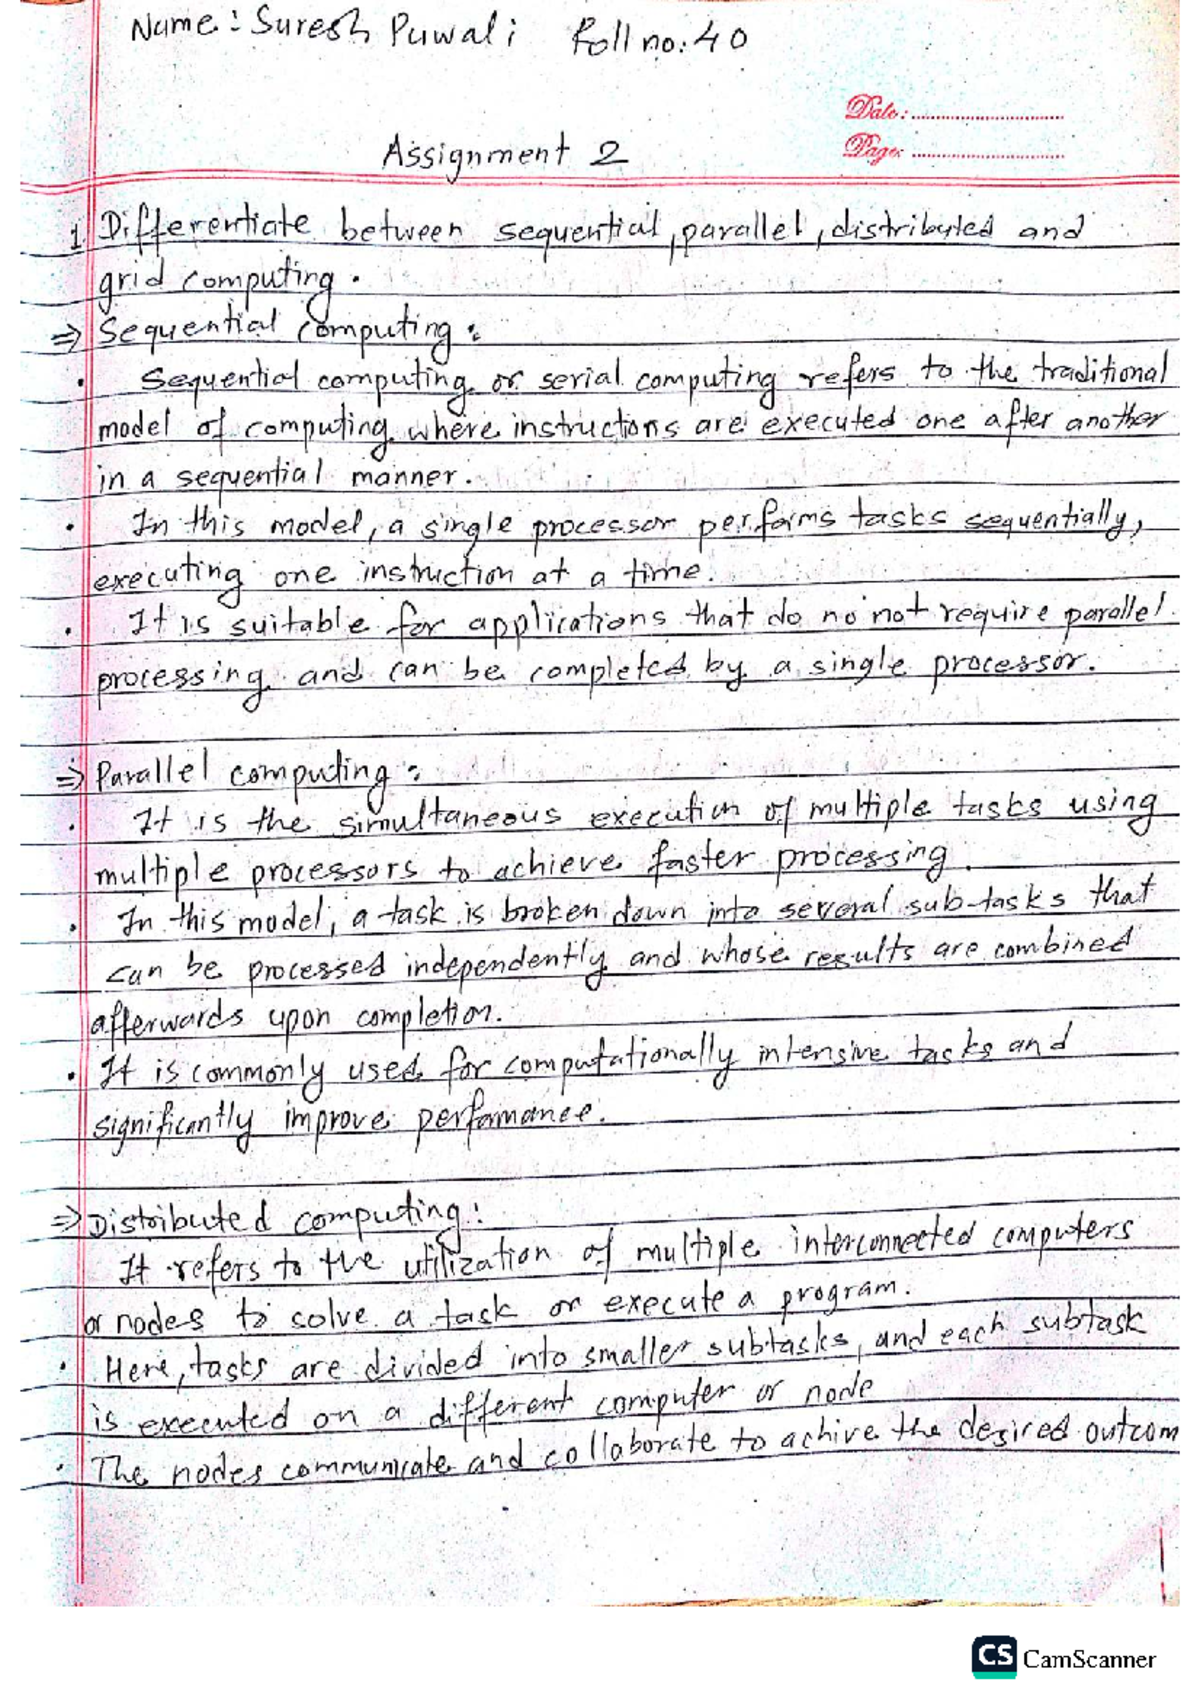 Name: Suresh Puwali Roll no: 40
Date:
Page:
Assignment 2
1. Differentiate between sequential, parallel, distributed and
grid computing.
⇒ Sequential computing:
• Sequential computing or serial computing refers to the traditional
model of computing where instructions are executed one after another
in a sequential manner.
• In this model, a single processor performs tasks sequentially,
executing one instruction at a time.
• It is suitable for applications that do no not require parallel
processing and can be completed by a single processor.
⇒ Parallel computing:
• It is the simultaneous execution of multiple tasks using
multiple processors to achieve faster processing.
• In this model, a task is broken down into several sub-tasks that
can be processed independently and whose results are combined
afterwards upon completion.
• It is commonly used for computationally intensive tasks and
significantly improve performance.
⇒ Distributed computing:
It refers to the utilization of multiple interconnected computers
or nodes to solve a task or execute a program.
• Here, tasks are divided into smaller subtasks, and each subtask
is executed on a different computer or node
• The nodes communicate and collaborate to achive the desired outcom
CS CamScanner